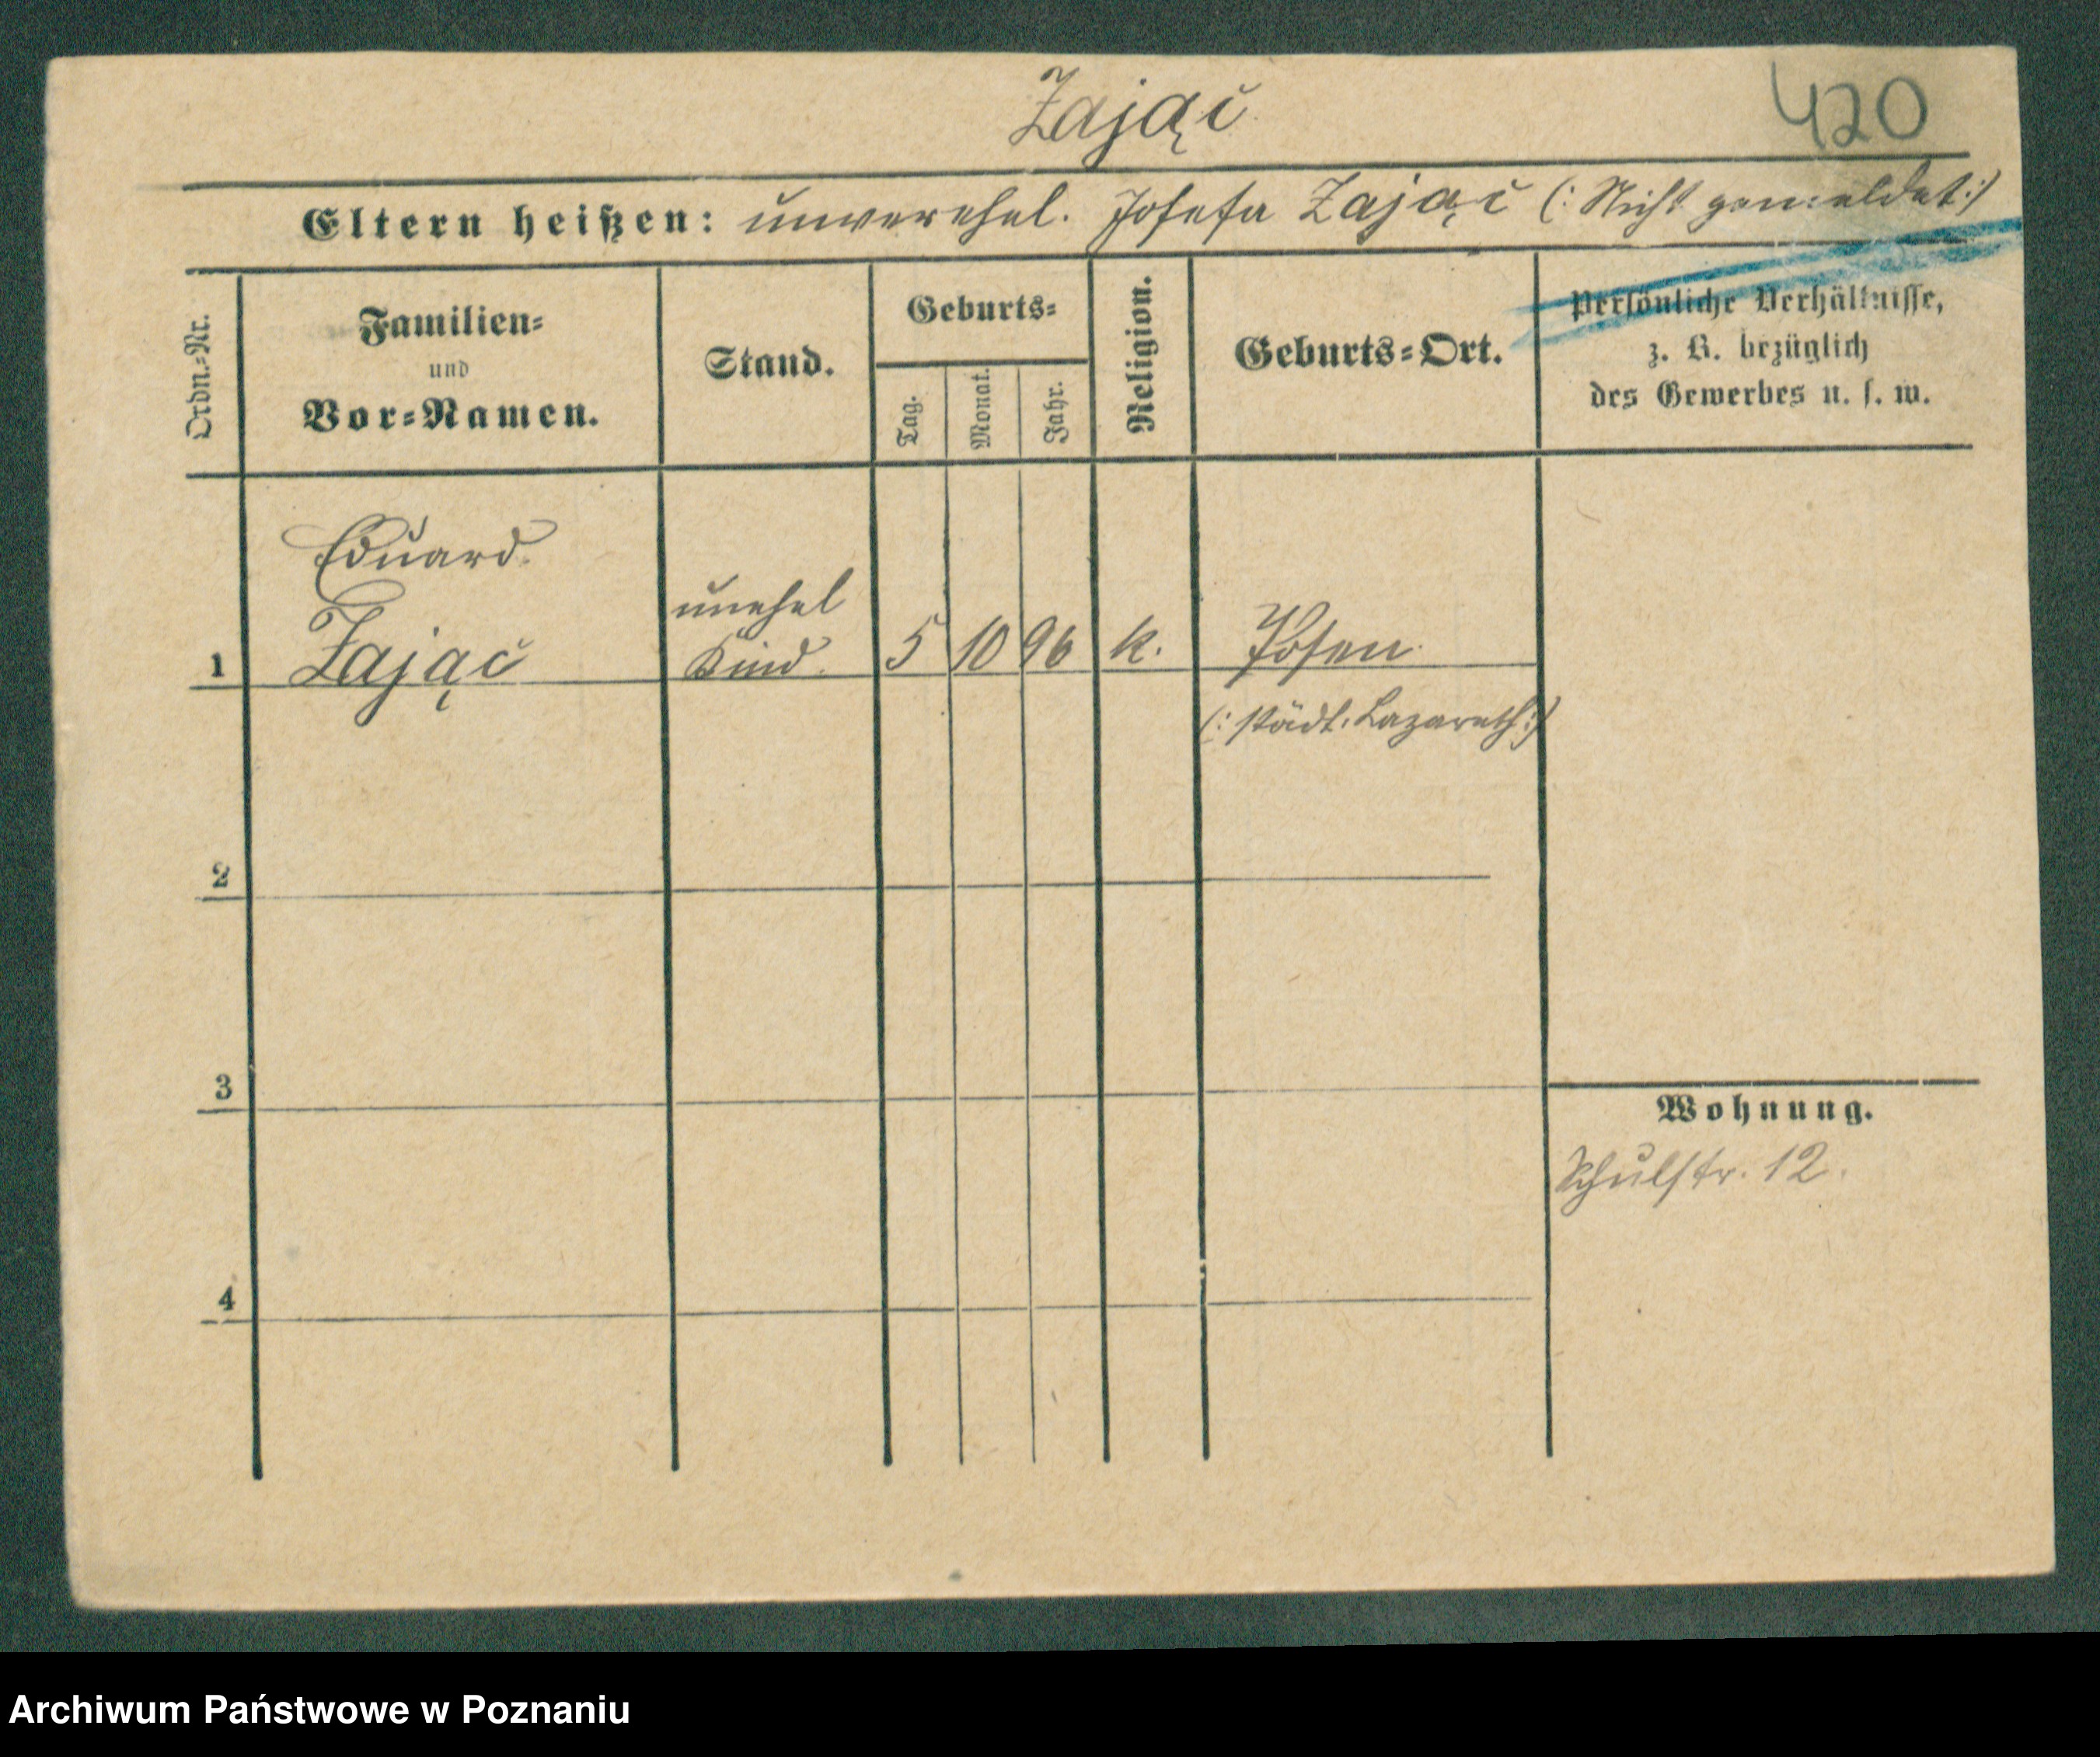 Zając
420
Eltern heißen: unverehel. Josefa Zając (: Nicht gemeldet :)
Ordn.-Nr.
Familien-
und
Vor-Namen.
Stand.
Geburts-
Tag.
Monat.
Jahr.
Religion.
Geburts-Ort.
Persönliche Verhältnisse,
z. B. bezüglich
des Gewerbes u. s. w.
Eduard
1 Zając unehel Kind. 5 10 96 k. Posen
(: städt. Lazareth :)
2
3
Wohnung.
Schulstr. 12.
4
Archiwum Państwowe w Poznaniu